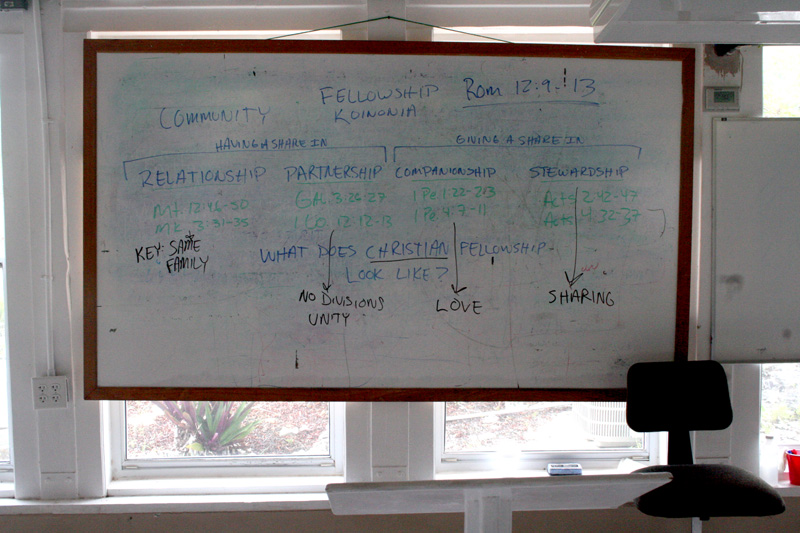 FELLOWSHIP Rom 12:9-13
COMMUNITY KOINONIA
HAVING A SHARE IN GIVING A SHARE IN
RELATIONSHIP PARTNERSHIP COMPANIONSHIP STEWARDSHIP
Mt. 12:46-50 GAl. 3:26-27 1 Pe 1:22-2:3 Acts 2:42-47
Mk. 3:31-35 1 Co. 12:12-13 1 Pe 4:7-11 Acts 4:32-37
KEY: SAME
FAMILY
WHAT DOES CHRISTIAN FELLOWSHIP
LOOK LIKE?
NO DIVISIONS LOVE SHARING
UNITY